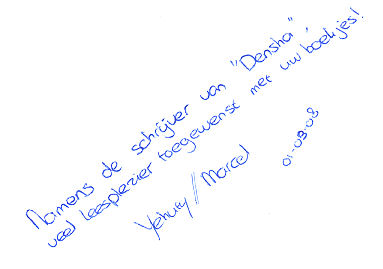 Namens de schrijver van "Densha"
veel leesplezier toegewenst met uw boekjes!
// Marcel
01-09-08